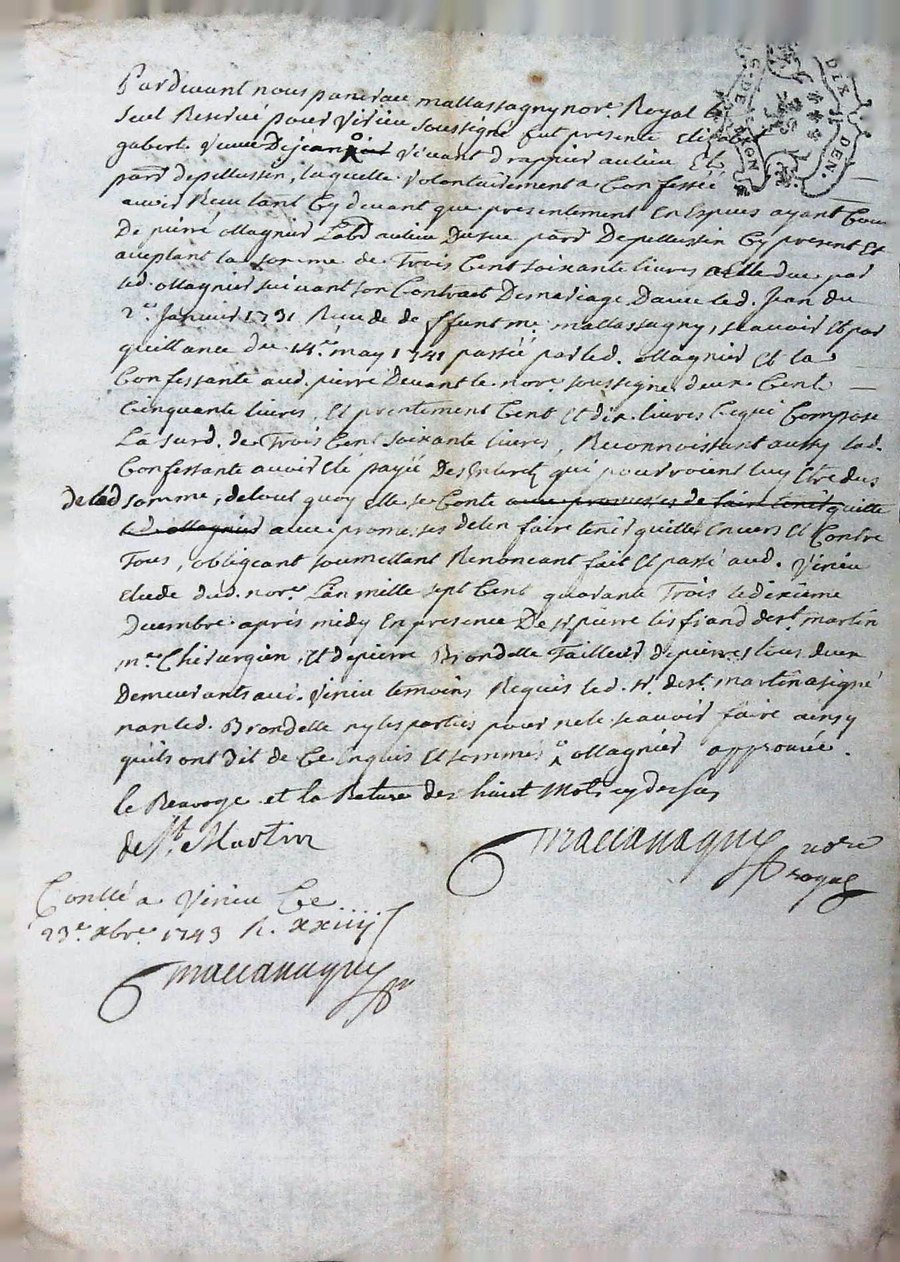 Pardevant nous pancrace mallassagny nore. Royal &
seul Reservé pour Virieu soussigné fut presente Eliza
gabert veuve De jean vivant drapier au lieu Et
parr. de pellussin, laquelle volontairement a Confessé
avoir Reçu tant Cy devant que presentement En Especes ayant Cours
De pierre Magnier Lab. au lieu Du parr. De pellussin Cy present Et
aceptant la somme de Trois Cent soixante livres a elle due par
led. Magnier suivant son Contract De mariage D'avec led. Jean du
2e. Janvier 1731 Recu de deffunt me. mallassagny, sçauoir Et par
quittance du 14e. may 1741 passée par led. Magnier Et la
Confessante aud. pierre Devant le nore. soussigné deux Cent
Cinquante livres, Et prntement Cent Et dix livres Ce qui Compose
La susd. de Trois Cent soixante livres, Reconnoissant aussy lad.
Confessante avoir Eté payée Des interets qui pourroient luy Etre dus
de lad somme, de tout quoy elle se Conte avec promesses de faire tenir quitte
led. Magnier avec promesses de l'en faire tenir quitte Envers Et Contre
Tous, obligeant soumettant Renonceant fait Et passé aud. Virieu
Etude dud. nore. L'an mille sept Cent quarante Trois le dixieme
Decembre après midy En presence De sr. pierre de st. martin
me. Chirurgien, Et de pierre Brondelle Tailleur de pierres tous deux
Demeurants aud. Virieu temoins Requis led. sr. de st. martin a signé
non led. Brondelle ny les parties pour ne le sçavoir faire ainsy
qu'ils ont dit de Ce Enquis Et sommés Magnier approuvée.
le Renvoye et la Rature des huict Mots cy dessus
de St. Martin
Mallassagny nore
royal
Conllé a Virieu Ce
23e. xbre. 1743 R. xxiiij s
Mallassagny
DIX DEN.
G. DE LYON